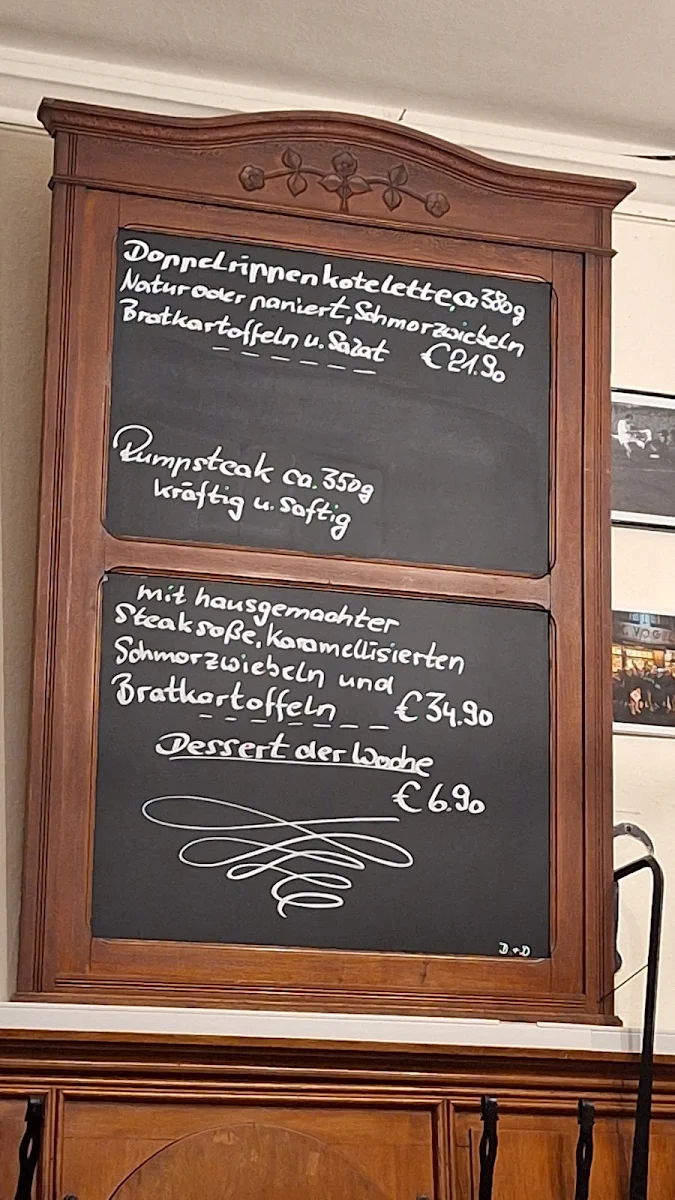 Doppelrippenkotelette, ca 380g
Natur oder paniert, Schmorzwiebeln
Bratkartoffeln u. Salat €21.90
Rumpsteak ca. 350g
kräftig u. saftig
mit hausgemachter
Steaksoße, Karamellisierten
Schmorzwiebeln und
Bratkartoffeln €34.90
Dessert der Woche
€6.90
D.+D